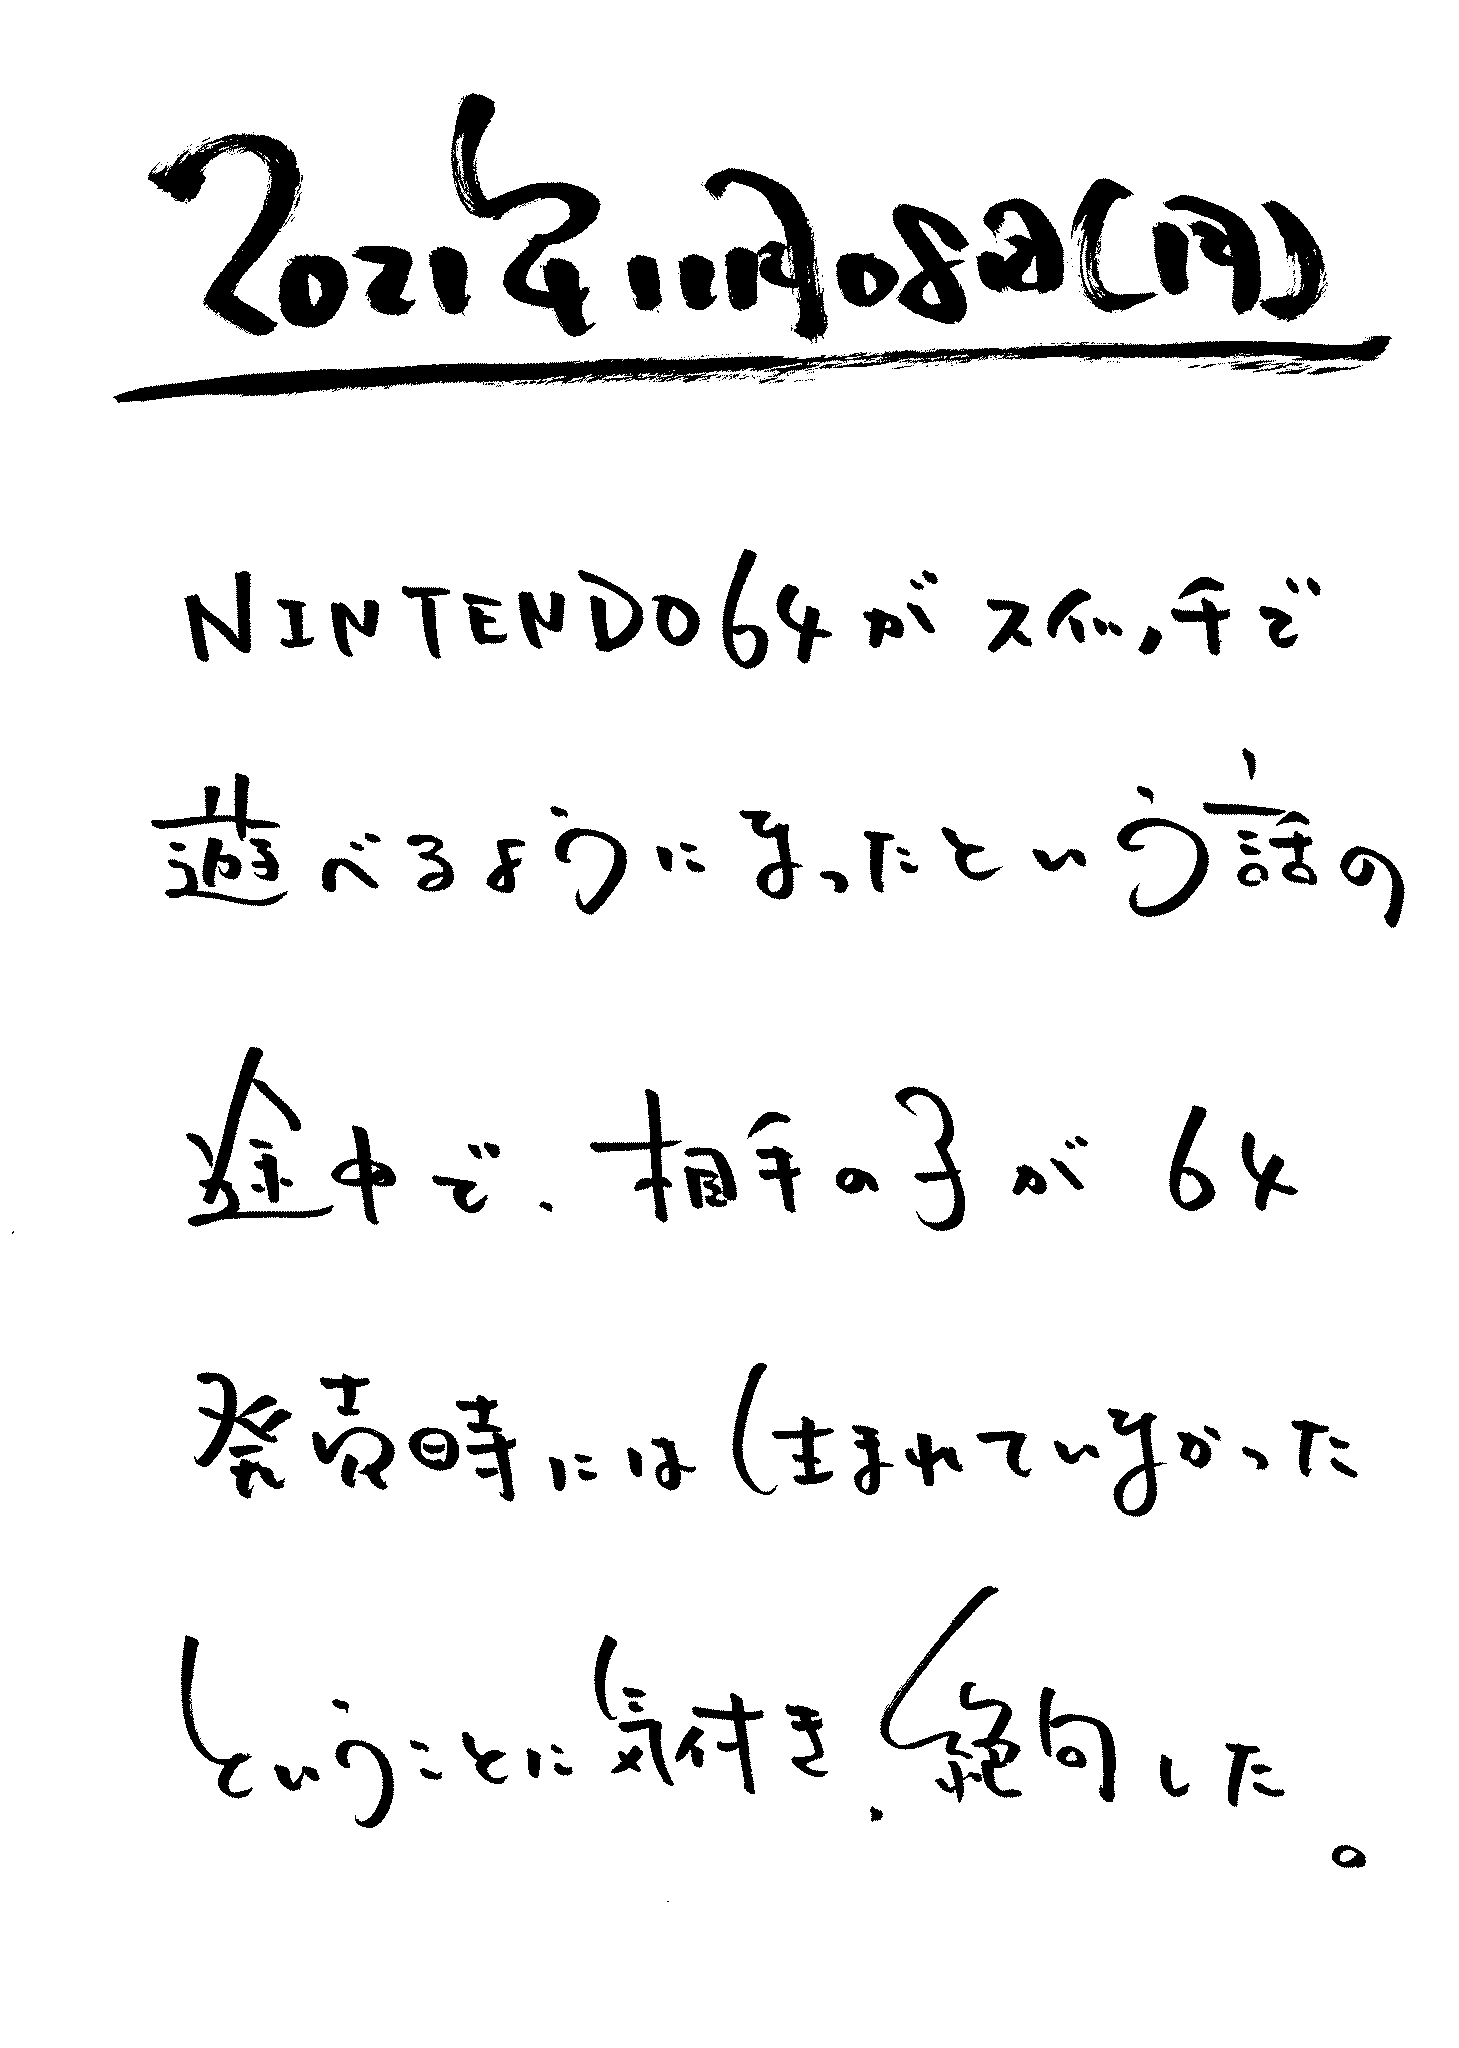 2021年11月08日(月)
NINTENDO64がスイッチで
遊べるようになったという話の
途中で、相手の子が64
発売時には生まれていなかった
ということに気付き、絶句した。